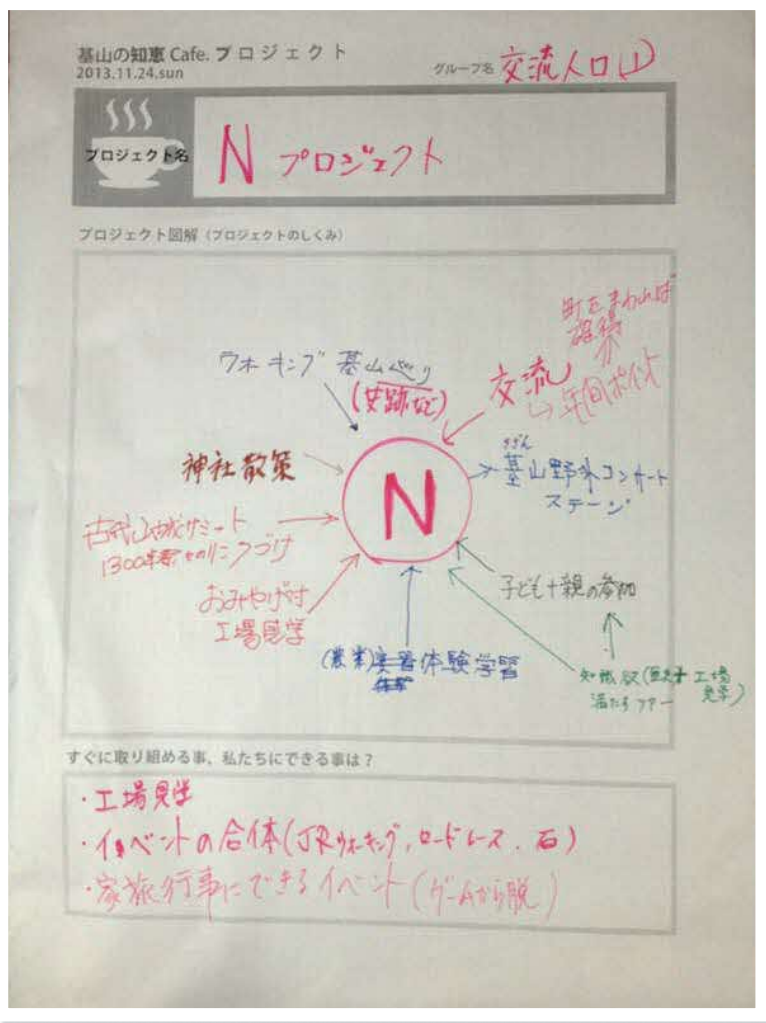 基山の知恵 Cafe. プロジェクト
2013.11.24.sun
グループ名 交流人口(1)
プロジェクト名
N プロジェクト
プロジェクト図解（プロジェクトのしくみ）
町をまわれば
交流
→年間ポイント
ウォーキング 基山めぐり
(史跡など)
神社散策
N
きざん
基山野外コンサート
ステージ
古代山城サミット
1300年祭
つづけ
おみやげ付
工場見学
子ども+親の参加
(農業)
体験学習
知識欲(
工場
見学)
満たすツアー
すぐに取り組める事、私たちにできる事は？
・工場見学
・イベントの合体(JRウォーキング、ロードレース、石)
・家族行事にできるイベント(ゲームから脱)